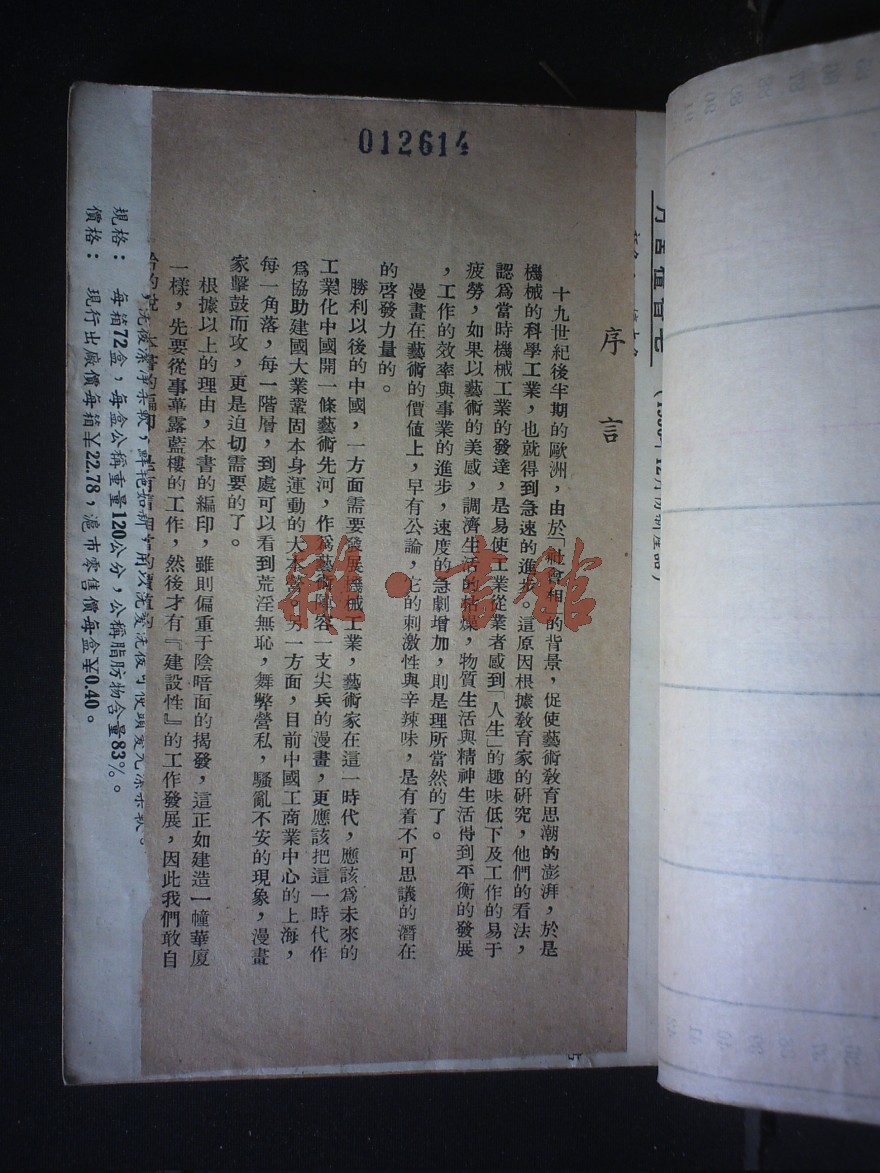 012614
序言
十九世紀後半期的歐洲，由於「社會相」的背景，促使藝術教育思潮的澎湃，於是
機械的科學工業，也就得到急速的進步。這原因根據教育家的研究，他們的看法，
認爲當時機械工業的發達，是易使工業從業者感到「人生」的趣味低下及工作的易于
疲勞，如果以藝術的美感，調濟生活的枯燥，物質生活與精神生活得到平衡的發展
，工作的效率與事業的進步，速度的急劇增加，則是理所當然的了。
漫畫在藝術的價値上，早有公論，它的刺激性與辛辣味，是有着不可思議的潛在
的啓發力量的。
勝利以後的中國，一方面需要發展機械工業，藝術家在這一時代，應該爲未來的
工業化中國開一條藝術先河，作爲藝術陣容一支尖兵的漫畫，更應該把這一時代作
爲協助建國大業鞏固本身運動的大本營。另一方面，目前中國工商業中心的上海，
每一角落，每一階層，到處可以看到荒淫無恥，舞弊營私，騷亂不安的現象，漫畫
家擊鼓而攻，更是迫切需要的了。
根據以上的理由，本書的編印，雖則偏重于陰暗面的揭發，這正如建造一幢華厦
一樣，先要從事蓽露藍樓的工作，然後才有『建設性』的工作發展，因此我們敢自
規格： 每箱72盒，每盒公稱重量120公分，公稱脂肪物含量83%。
價格： 現行出廠價每箱￥22.78，滬市零售價每盒￥0.40。
龍·書館